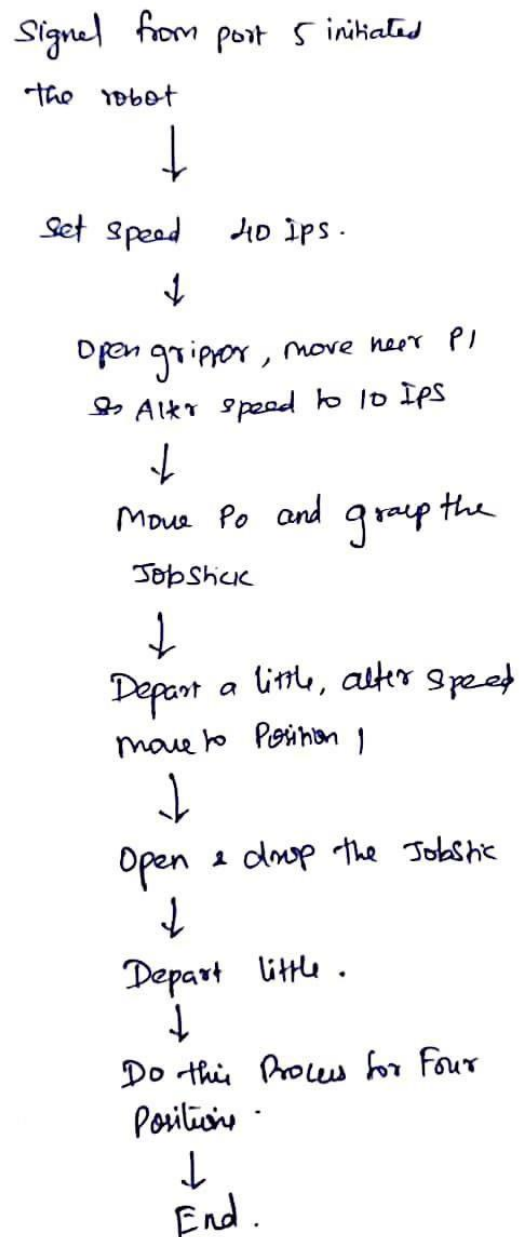 Signel from port 5 initiated
the robot
↓
Set speed 40 IPS.
↓
Open gripper, move neer P1
Alter speed to 10 IPS
↓
Move Po and grasp the
Jobstick
↓
Depart a little, alter speed
move to Position 1
↓
Open & drop the Jobstic
↓
Depart little.
↓
Do this Process for Four
Positions.
↓
End.